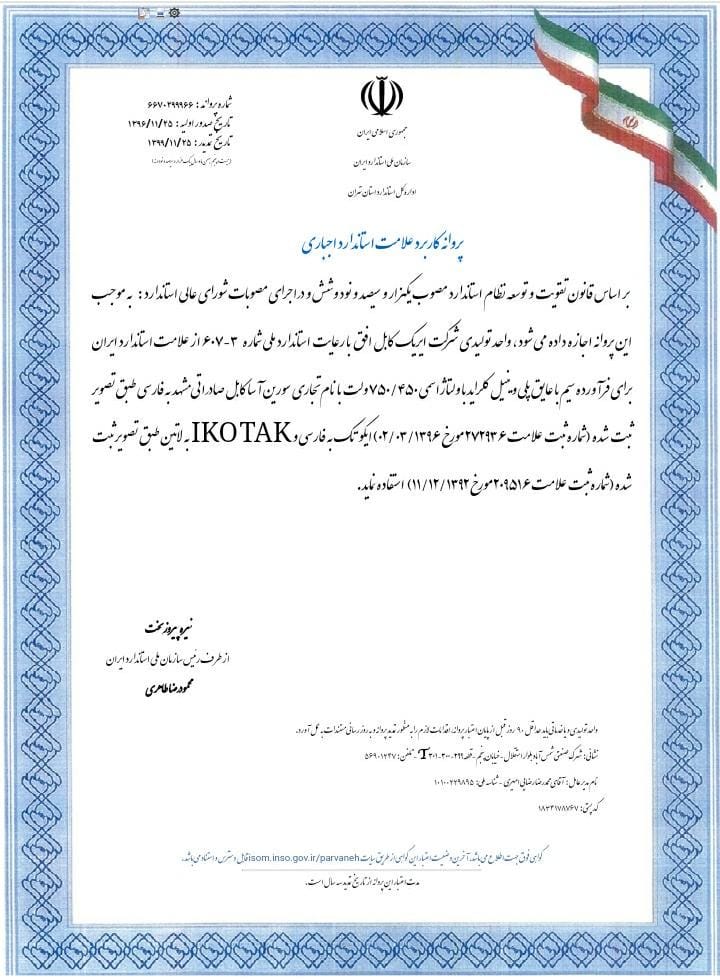 شماره پروانه : ۶۶۷۰۲۹۹۹۶۶
تاریخ صدور اولیه : ۱۳۹۶/۱۱/۲۵
تاریخ تمدید : ۱۳۹۹/۱۱/۲۵
جمهوری اسلامی ایران
سازمان ملی استاندارد ایران
اداره کل استاندارد استان تهران
پروانه کاربرد علامت استاندارد اجباری
بر اساس قانون تقویت و توسعه نظام استاندارد مصوب یکهزار و سیصد و نود و شش و در اجرای مصوبات شورای عالی استاندارد : به موجب
این پروانه اجازه داده می شود ، واحد تولیدی شرکت ایریک کابل افق با رعایت استاندارد ملی شماره ۳-۶۰۷ از علامت استاندارد ایران
برای فرآورده سیم با عایق پلی وینیل کلراید با ولتاژ اسمی ۷۵۰/۴۵۰ ولت با نام تجاری سورین آسا کابل صادراتی مشهد به فارسی طبق تصویر
ثبت شده (شماره ثبت علامت ۲۷۲۹۳۶ مورخ ۰۲/۰۳/۱۳۹۶) ایکو تک به فارسی و IKOTAK به لاتین طبق تصویر ثبت
شده (شماره ثبت علامت ۲۰۹۵۱۶ مورخ ۱۱/۱۲/۱۳۹۲) استفاده نماید .
نیره پیروزبخت
از طرف رئیس سازمان ملی استاندارد ایران
محمودرضا طاهری
واحد تولیدی و یا خدماتی باید حداقل ۹۰ روز قبل از پایان اعتبار پروانه، اقدامات لازم را به منظور تمدید پروانه و به روز رسانی مستندات به عمل آورد.
نشانی: شهرک صنعتی شمس آباد بلوار استقلال - خیابان پنجم - قطعه T۳۰۱-۳۰۰-۲۹۹ - تلفن: ۵۶۹۰۱۲۴۷
نام مدیر عامل: آقای محمدرضا رضایی امیری - شناسه ملی: ۱۰۱۰۰۲۲۹۸۹۵
کد پستی: ۱۸۳۴۱۷۸۷۶۷
گواهی فوق جهت اطلاع می باشد. آخرین وضعیت اعتبار این گواهی از طریق سایت isom.inso.gov.ir/parvaneh قابل دسترس و استناد می باشد.
مدت اعتبار این پروانه از تاریخ تمدید سه سال است.